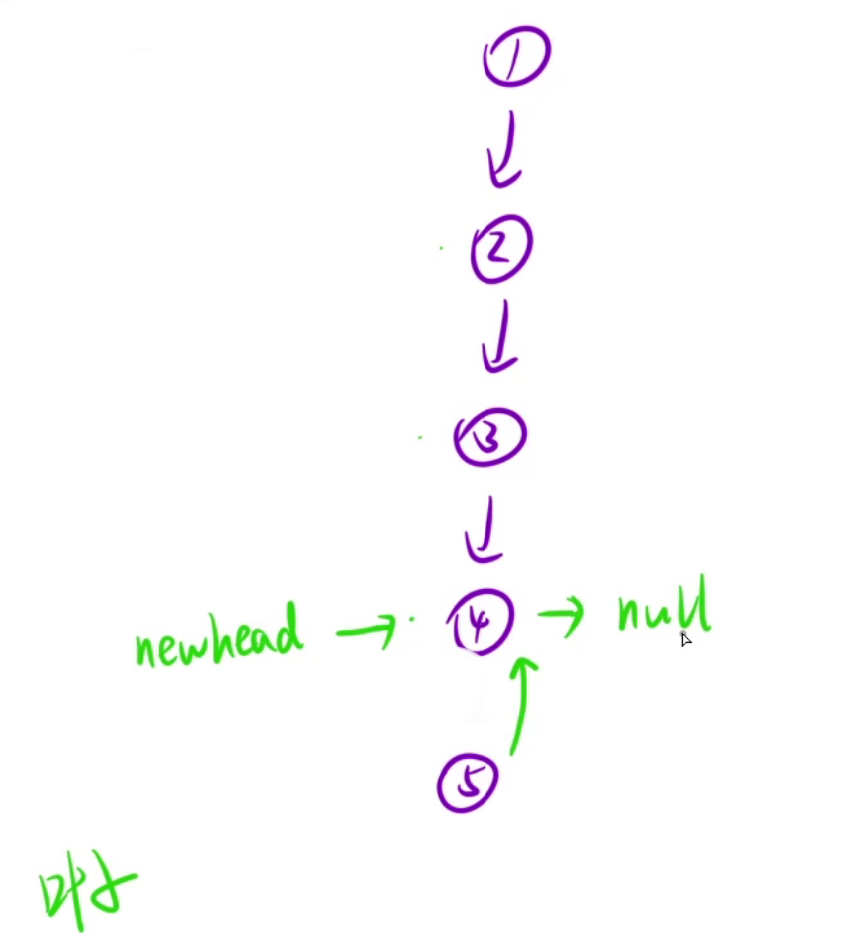 1
2
3
newhead → 4 → null
5